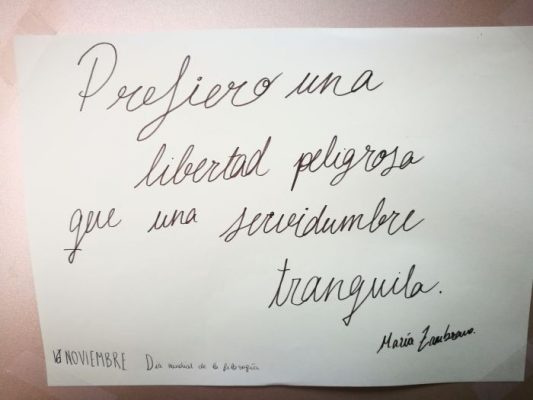 Prefiero una
libertad peligrosa
que una servidumbre
tranquila.
María Zambrano.
16 NOVIEMBRE Día mundial de la filosofía